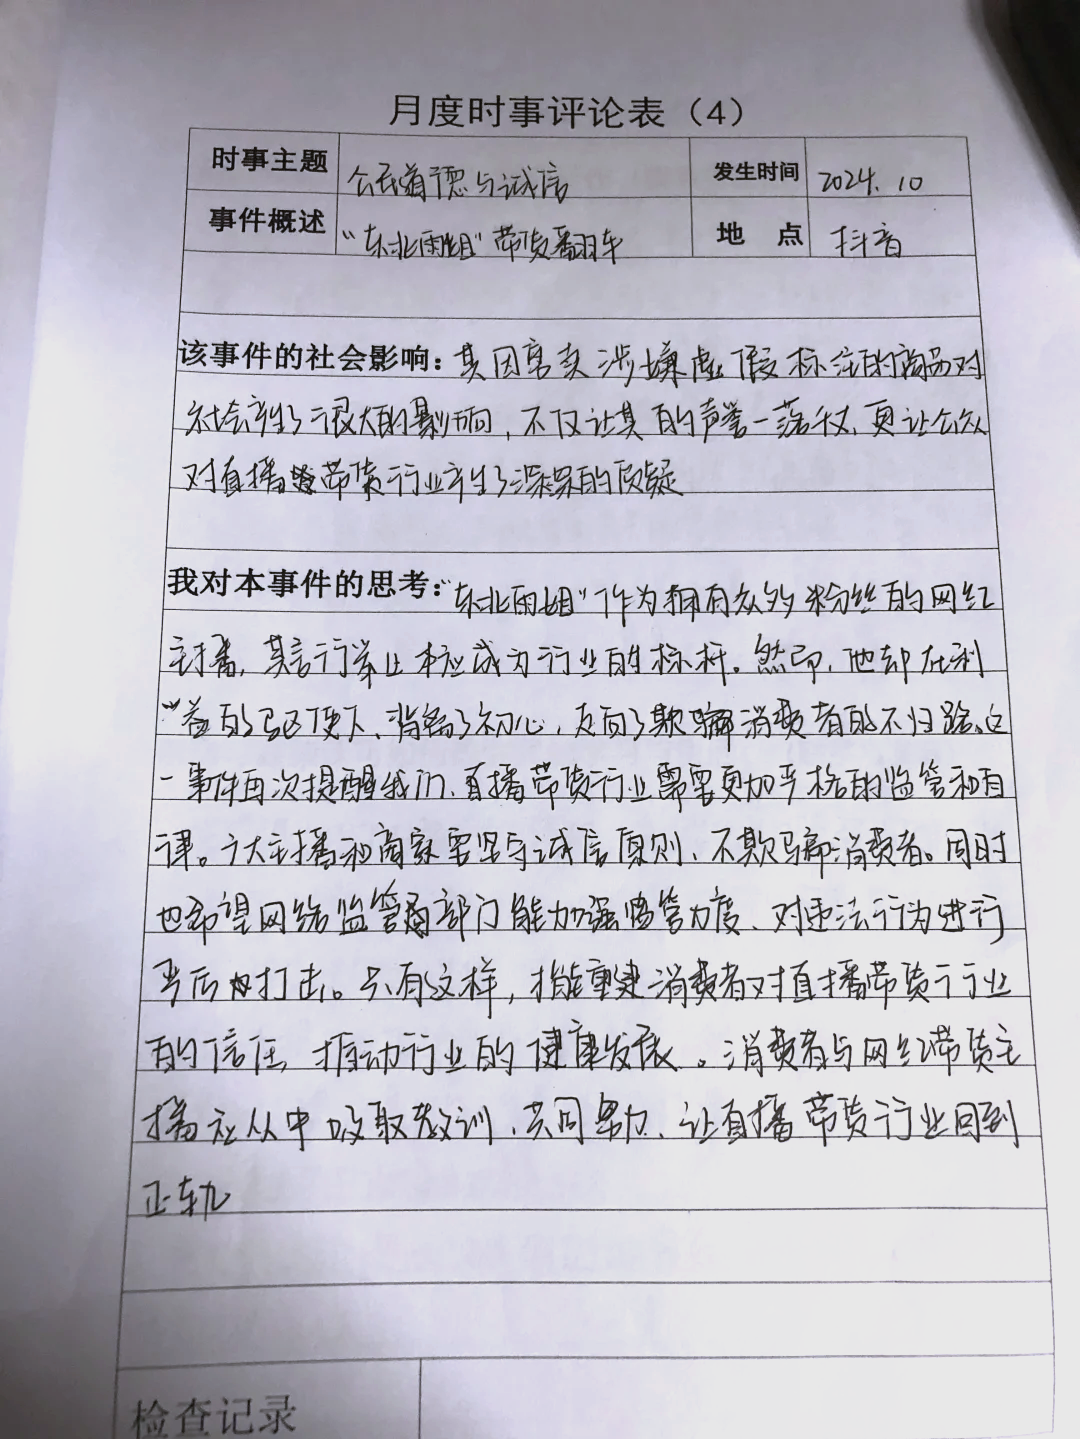 月度时事评论表（4）
时事主题 公民道德与诚信 发生时间 2024.10
事件概述 “东北雨姐”带货翻车 地 点 抖音
该事件的社会影响：其因售卖涉嫌虚假标注的商品对
社会产生了很大的影响，不仅让其的声誉一落千丈，更让公众
对直播带货行业产生了深深的质疑
我对本事件的思考：“东北雨姐”作为拥有众多粉丝的网红
主播，其言行举止本应成为行业的标杆。然而，他却在利
益的驱使下、背弃了初心，走向了欺骗消费者的不归路。这
一事件再次提醒我们、直播带货行业需要更加严格的监管和自
律。广大主播和商家要坚守诚信原则、不欺骗消费者。同时
也希望网络监管部门能加强监管力度、对违法行为进行
打击。只有这样，才能重建消费者对直播带货行业
的信任，推动行业的健康发展。消费者与网红带货主
播应从中吸取教训、共同努力、让直播带货行业回到
正轨
检查记录